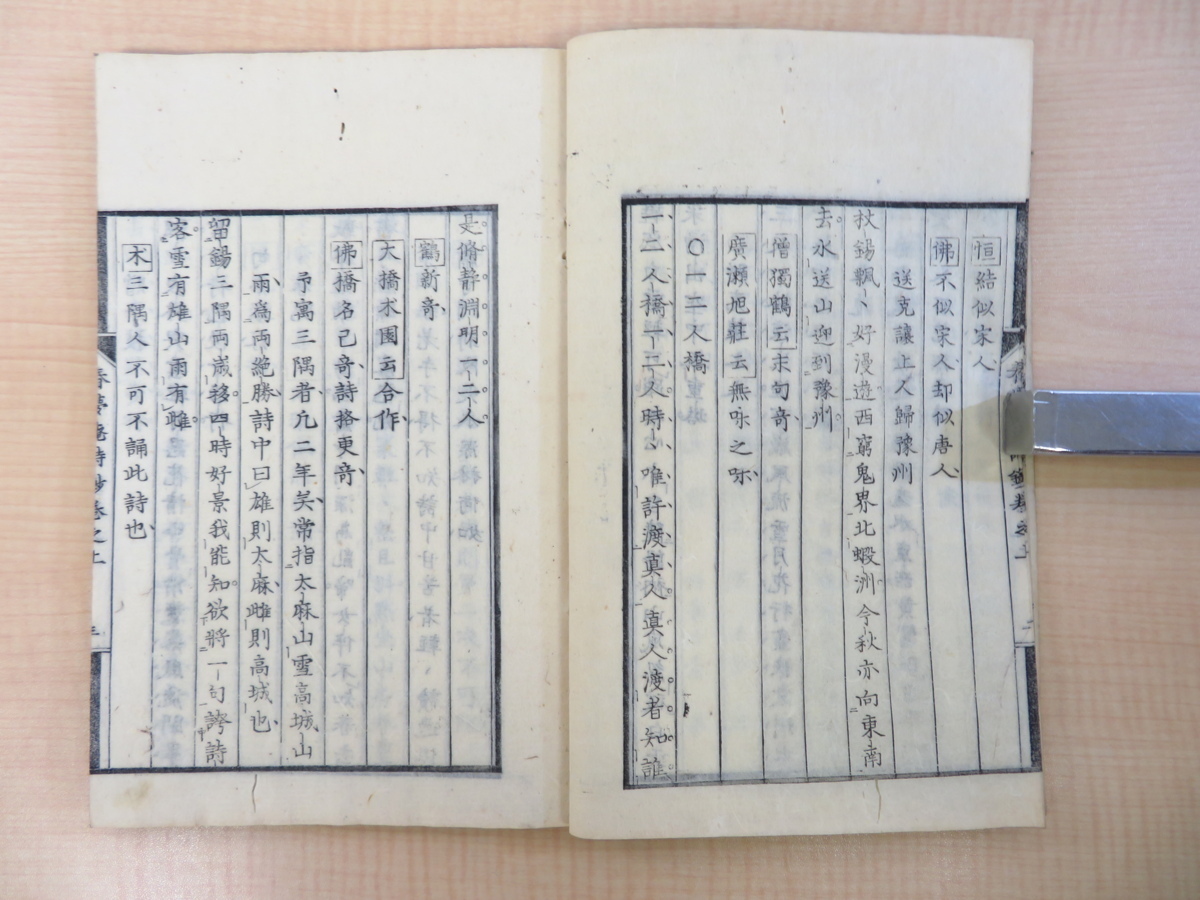 恒結似宋人
佛不似宋人却似唐人
送克讓上人歸豫州
杖錫飄々好漫遊西窮鬼界北蝦洲今秋亦向東南
去水送山迎到豫州
僧獨鶴云末句奇
廣瀬旭莊云無味之味
〇一二人橋
一二人橋一二人時唯許渡真人真人渡者知誰
是脩静淵明一二人
鶴新奇
大橋木園云合作
佛橋名已奇詩格更奇
予寓三隅者凡二年矣常指太麻山雪高城山
雨爲両絶勝詩中曰雄則太麻雌則高城也
留錫三隅両歳移四時好景我能知欲將一句誇詩
客雪有雄山雨有雌
木三隅人不可不誦此詩也
春夢庵詩鈔巻之上